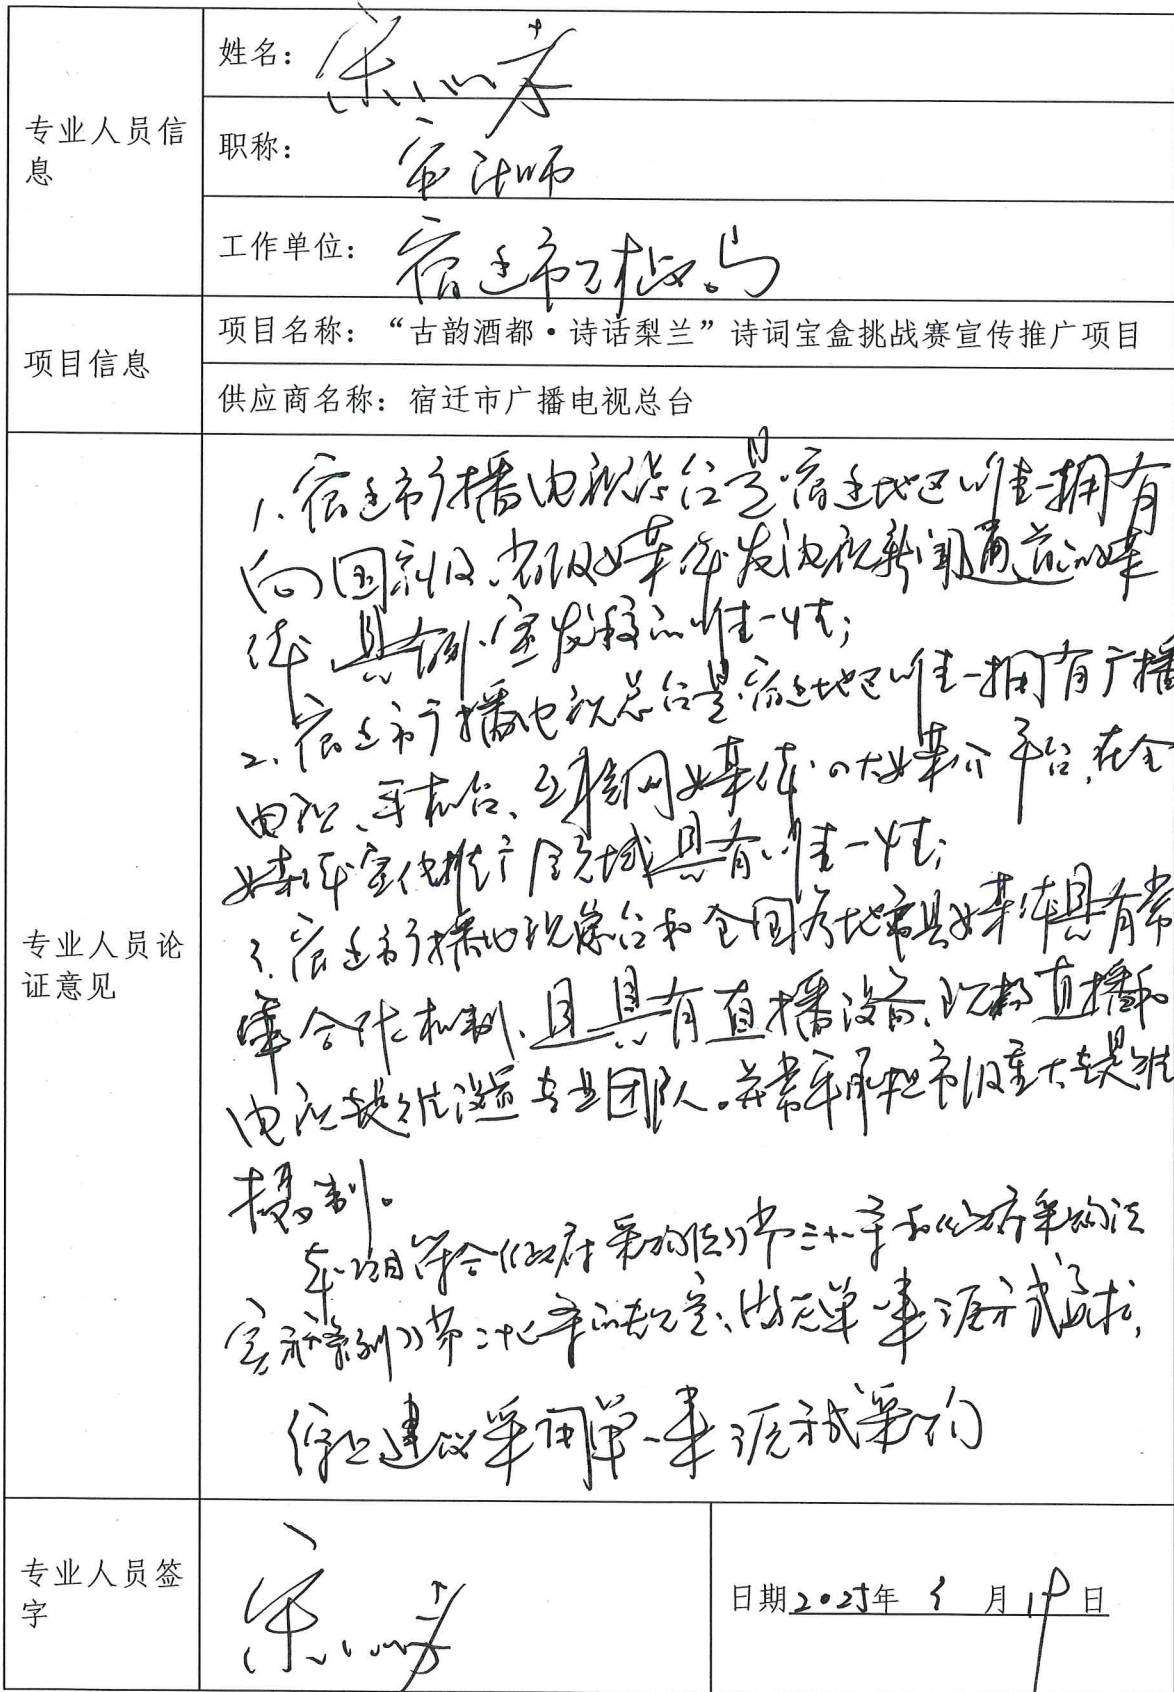 专业人员信息
姓名：宋
职称：审计师
工作单位：宿迁市财政局
项目信息
项目名称：“古韵酒都·诗话梨兰”诗词宝盒挑战赛宣传推广项目
供应商名称：宿迁市广播电视总台
专业人员论证意见
1、宿迁市广播电视总台是宿迁地区唯一拥有
向国家级、省级媒体发送电视新闻通道的媒
体，具有外宣发稿的唯一性；
2、宿迁市广播电视总台是宿迁地区唯一拥有广播
电视、手机台、互联网媒体四大媒介平台，在全
媒体宣传推广领域具有唯一性；
3、宿迁市广播电视总台和全国各地市县媒体具有常
合作机制，且具有直播设备、直播和
电视专业团队。并常年承担市级重大
摄制。
本项目符合《政府采购法》第三十一条和《政府采购法
实施条例》第二十七条的规定，单一来源方式
建议采用单一来源方式采购
专业人员签字
宋
日期2025年 月19日